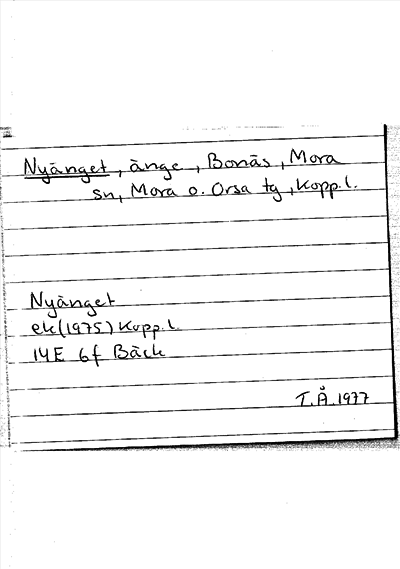 Nyänget, änge, Bonäs, Mora
sn, Mora o. Orsa tg, Kopp.l.
Nyänget
ek(1975) Kopp.l.
14E 6f Bäck
T.Å.1977